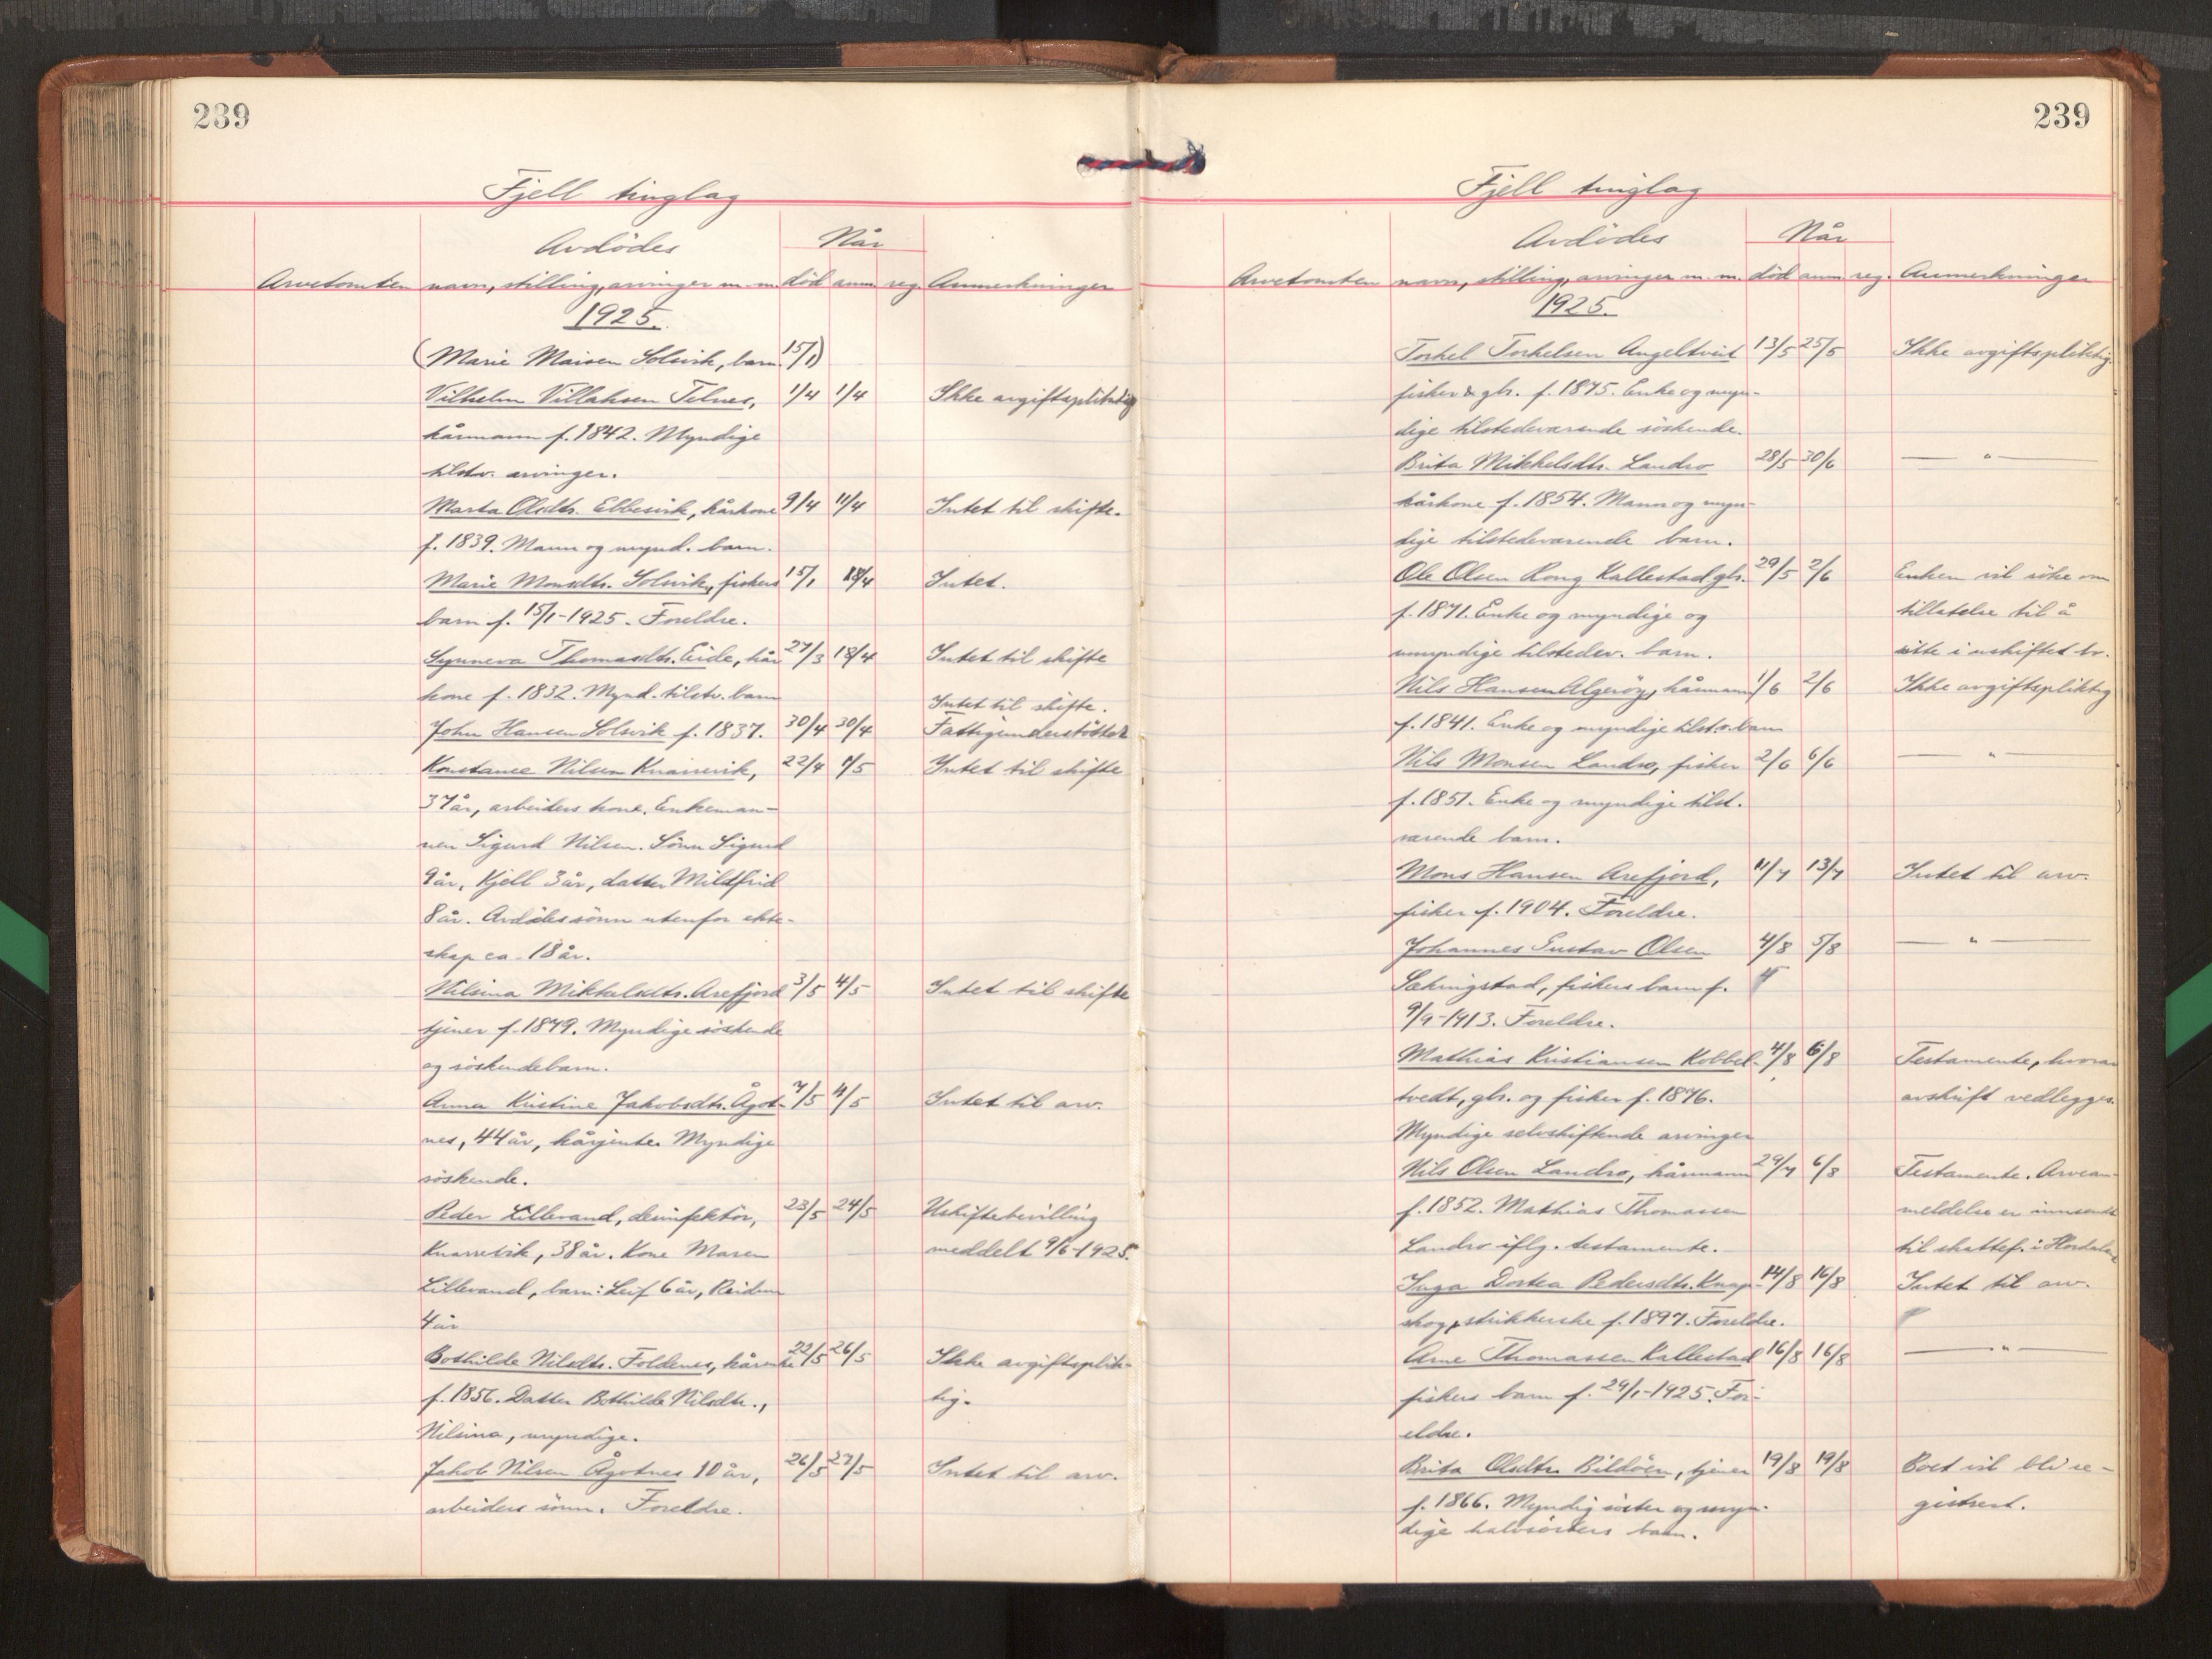 239
Fjell tinglag
Avdödes Når
Arvetomten navn, stilling, arvinger m.m. död anm. reg. Anmerkninger
1925.
(Marie Maisen Solsvik, barn. 15/1)
Vilhelm Villaksen Telnes, 1/4 1/4 Ikke avgiftspliktig
kårmann f. 1842. Myndige
tilstv. arvinger.
Marta Olsdtr. Ebbesvik, kårkone 9/4 11/4 Intet til skifte.
f. 1839. Mann og mynd. barn.
Marie Monsdtr. Solsvik, fiskers 15/1 18/4 Intet.
barn f. 15/1-1925. Foreldre.
Synneva Thomasdtr. Eide, kår 27/3 18/4 Intet til skifte
kone f. 1832. Mynd. tilstv. barn
Intet til skifte.
John Hansen Solsvik f. 1837. 30/4 30/4 Fattigunderstöttet
Konstance Nilsen Knarrevik, 22/4 1/5 Intet til skifte
37 år, arbeiders kone. Enkeman-
nen Sigurd Nilsen. Sönn Sigurd
9 år, Kjell 3 år, datter Mildfrid
8 år. Avdödes sönn utenfor ekte-
skap ca. 18 år.
Nilsina Mikkelsdtr. Arefjord 3/5 4/5 Intet til skifte
tjener f. 1879. Myndige söskende
og söskendebarn.
Anna Kristine Jakobsdtr. Ågot- 7/5 11/5 Intet til arv.
nes, 44 år, kårjente. Myndige
söskende.
Peder Lillevand, desinfektör, 23/5 24/5 Uskiftebevilling
Knarrevik, 38 år. Kone Maren meddelt 9/6-1925.
Lillevand, barn: Leif 6 år, Reidun
4 år
Bothilde Nilsdtr. Foldenes, kårenke 22/5 26/5 Ikke avgiftsplik-
f. 1856. Datter Bothilde Nilsdtr., tig.
Nilsina, myndige.
Jakob Nilsen Ågotnes 10 år, 26/5 27/5 Intet til arv.
arbeiders sönn. Foreldre.
239
Fjell tinglag
Avdödes Når
Arvetomten navn, stilling, arvinger m.m. död anm. reg. Anmerkninger
1925.
Torkel Torkelsen Angeltveit 13/5 25/5 Ikke avgiftspliktig.
fisker & gbr. f. 1875. Enke og myn-
dige tilstedeværende söskende.
Brita Mikkelsdtr. Landro 28/5 30/6 — " —
kårkone f. 1854. Mann og myn-
dige tilstedeværende barn.
Ole Olsen Rong Kallestad gbr. 29/5 2/6 Enken vil söke om
f. 1871. Enke og myndige og tillatelse til å
umyndige tilstedev. barn. sitte i uskiftet bo.
Nils Hansen Algeröy, kårmann 1/6 2/6 Ikke avgiftspliktig
f. 1841. Enke og myndige tilst.v. barn
Nils Monsen Landro, fisker 2/6 6/6 — " —
f. 1851. Enke og myndige tilst.
værende barn.
Mons Hansen Arefjord, 11/7 13/7 Intet til arv.
fisker f. 1904. Foreldre.
Johannes Gustav Olsen 4/8 5/8 — " —
Sekingstad, fiskers barn f.
9/9-1913. Foreldre.
Mathias Kristiansen Kobbel- 4/8 6/8 Testamente, hvorav
tvedt, gbr. og fisker f. 1876. avskrift vedlegges.
Myndige selvskiftende arvinger
Nils Olsen Landro, kårmann 29/7 6/8 Testamente. Arvean-
f. 1852. Mathias Thomassen meldelse er innsendt
Landro iflg. testamente. til skattef. i Hordaland
Inga Dortea Pedersdtr. Knap- 14/8 16/8 Intet til arv.
skog, strikkerske f. 1897. Foreldre.
Arne Thomassen Kallestad 16/8 16/8 — " —
fiskers barn f. 24/1-1925. For-
eldre.
Brita Olsdtr. Bildöen, tjener 19/8 19/8 Boet vil bli re-
f. 1866. Myndig söster og myn- gistrert.
dige halvsösters barn.